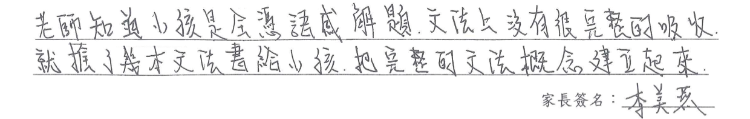 老師知道小孩是全憑語感解題.文法上沒有很完整的吸收.
就推了幾本文法書給小孩.把完整的文法概念建立起來.
家長簽名：李美燕